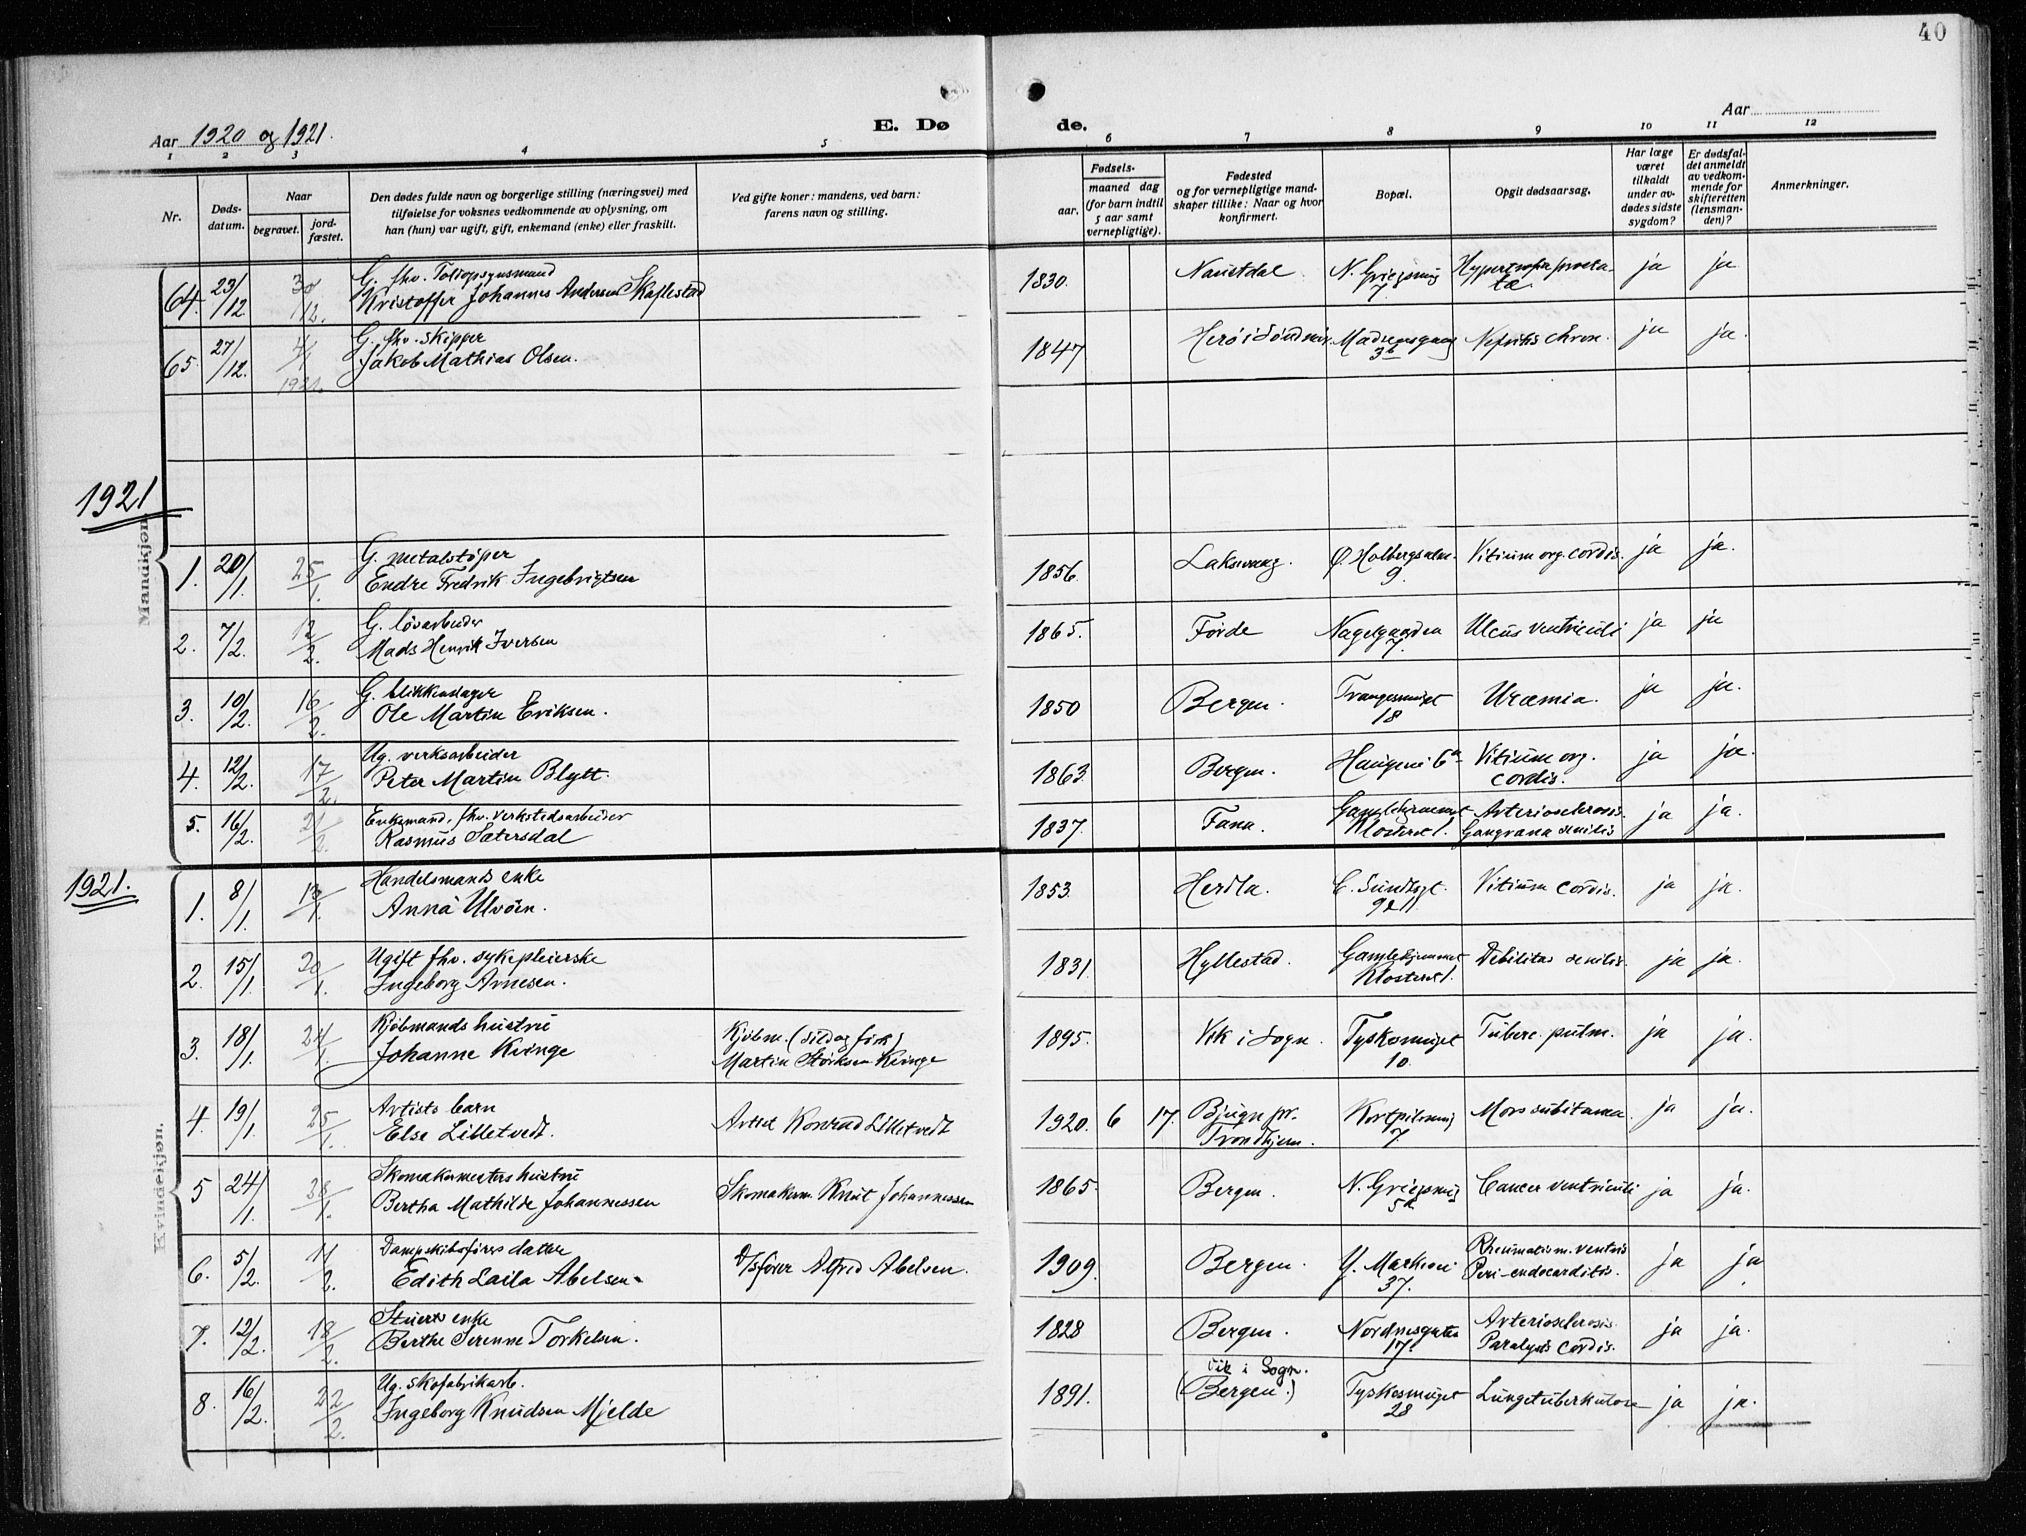 40
Aar 1920 og 1921.
E. Døde.
Aar
1 2 3 4 5 6 7 8 9 10 11 12
Nr.
Dødsdatum.
Naar
begravet.
jordfæstet.
Den dødes fulde navn og borgerlige stilling (næringsvei) med
tilføielse for voksnes vedkommende av oplysning, om
han (hun) var ugift, gift, enkemand (enke) eller fraskilt.
Ved gifte koner: mandens, ved barn:
farens navn og stilling.
Fødsels-
aar.
maaned dag
(for barn indtil
5 aar samt
vernepligtige).
Fødested
og for vernepligtige mand-
skaper tillike: Naar og hvor
konfirmert.
Bopæl.
Opgit dødsaarsag.
Har læge
været
tilkaldt
under av-
dødes sidste
sygdom?
Er dødsfal-
det anmeldt
av vedkom-
mende for
skifteretten
(lensman-
den)?
Anmerkninger.
Mandkjøn.
64. 23/12 30/12. G. fhv. Toliopsynsmand
Kristoffer Johannes Andersen Skaflestad 1830. Naustdal N. Griegsmug 7. Hypertrofia prosta-
tæ ja ja
65. 27/12. 4/1 1921. G. fhv. skipper
Jakob Mathias Olsen. 1847 Herø i Søndmør. 3b Nefritis chron. ja ja.
1921
1. 20/1. 25/1. G. metalstøper
Endre Fredrik Ingebrigtsen 1856. Laksevaag. Ø. Holbergsalm. 9. Vitium org. cordis. ja ja.
2. 7/2. 12/2. G. løsarbeider
Mads Henrik Iversen 1865. Førde Nagelgaarden 7. Ulcus ventriculi ja ja
3. 10/2. 16/2. G. blikkenslager
Ole Martin Eriksen. 1850 Bergen. Trangesmuget 18 Uræmia. ja ja.
4. 12/2. 17/2. Ug. verksarbeider
Peter Martin Blytt. 1863. Bergen. Haugeni 6a Vitium org.
cordis. ja ja.
5. 16/2. 21/2. Enkemand, fhv. verkstedsarbeider
Rasmus Sætersdal 1837. Fana. Gamlehjemmet
Klosteret 1. Arteriosclerosis.
Gangræna senilis ja ja.
1921.
Kvindekjøn.
1. 8/1. 13/1. Handelsmands enke
Anna Ulvøen. 1853. Herdla. C. Sundtsgt. Vitium cordis. ja ja.
2. 15/1. 20/1. Ugift fhv. sykepleierske
Ingeborg Arnesen. 1831. Hyllestad. Gamlehjemmet
Klosteret 1. Debilitas senilis. ja ja.
3. 18/1. 24/1. Kjøbmands hustru
Johanne Kvinge Kjøbm. (sild og fisk)
Martin Størksen Kvinge 1895. Vik i Sogn. Tyskesmuget 10. Tuberc. pulm. ja ja.
4. 19/1. 25/1. Artists barn
Else Lilletvedt. Artist Konrad Lilletvedt 1920. 6 17. Bjugn pr.
Trondhjem. Kortpilsmug 7. Mors subitanea. ja ja.
5 24/1. 28/1. Skomakermesters hustru
Bertha Mathilde Johannessen Skomakerm. Knut Johannessen 1865. Bergen. N. Griegsmug 5a Cancer ventriculi ja ja.
6. 5/2. 11/2. Dampskibsførers datter
Edith Laila Abelsen. D/sfører Alfred Abelsen. 1909. Bergen. Y. Markvei 37. Rheumatism. ventris
Peri-endocarditis. ja ja
7. 12/2. 18/2. Stuerts enke
Berthe Serenne Torkelsen. 1828 Bergen. Nordnesgaten 17. Arteriosclerosis.
Paralysis cordis. ja ja.
8. 16/2. 22/2. Ug. skofabrikarb.
Ingeborg Knudsen Mjelde 1891. Vik i Sogn.
(Bergen.) Tyskesmuget 28 Lungetuberkulose ja ja.